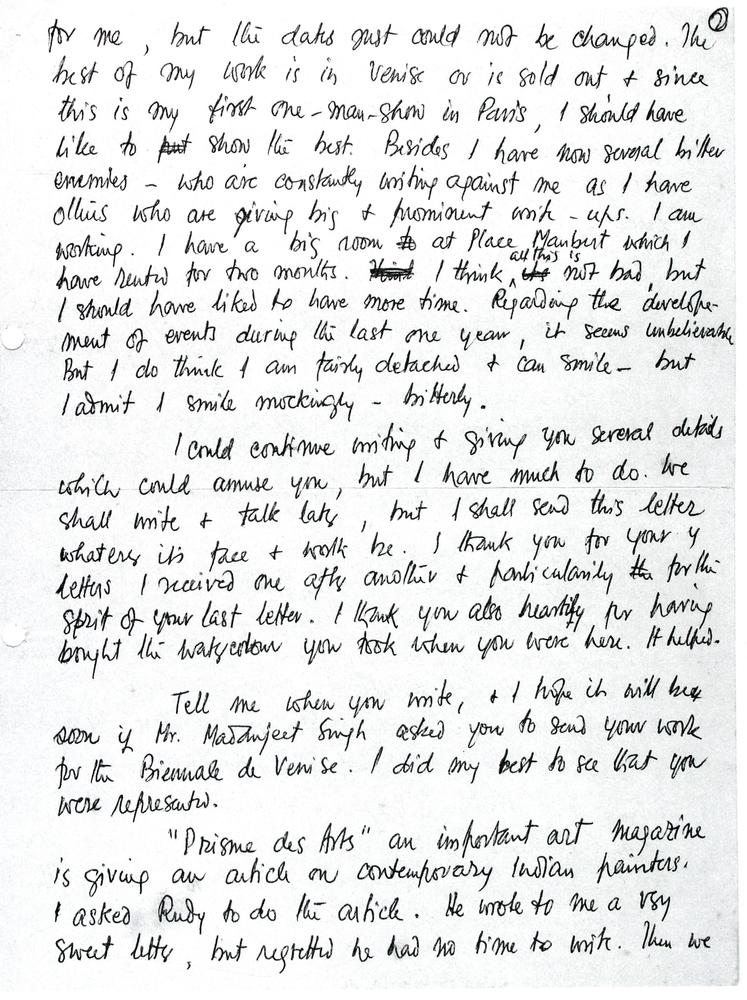 2
for me, but the dates just could not be changed. The
best of my work is in Venise or is sold out, & since
this is my first one-man-show in Paris, I should have
like to put show the best. Besides I have now several bitter
enemies - who are constantly writing against me as I have
others who are giving big & prominent write-ups. I am
working. I have a big room to at Place Maubert which I
have rented for two months. Think I think, all this is not bad, but
I should have liked to have more time. Regarding the develope-
ment of events during the last one year, it seems unbelievable
But I do think I am fairly detached & can smile - but
I admit I smile mockingly - bitterly.
I could continue writing & giving you several details
which could amuse you, but I have much to do. We
shall write & talk later, but I shall send this letter
whatever it's face & worth be. I thank you for your
letters I received one after another & particularily for the
sprit of your last letter. I thank you also heartily for having
bought the watercolour you took when you were here. It helped.
Tell me when you write, & I hope it will be
soon if Mr. Madanjeet Singh asked you to send your work
for the Biennale de Venise. I did my best to see that you
were represented.
"Prisme des Arts" an important art magazine
is giving an article on contemporary Indian painters.
I asked Rudy to do the article. He wrote to me a very
sweet letter, but regretted he had no time to write. Then we